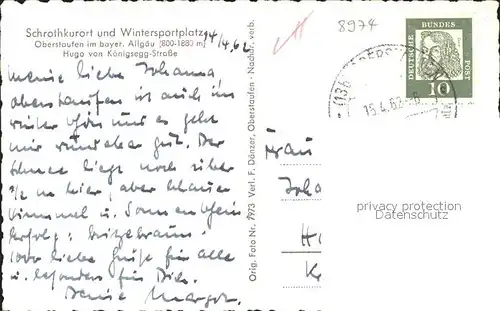 Schrothkurort und Wintersportplatz
Oberstaufen im bayer. Allgäu (800-1880 m)
Hugo von Königsegg-Straße
14/4.62
8974
Meine liebe Johanna
oberstaufen ist auch im
Winter schön und es geht
mir wunderbar gut. Der
Schnee liegt noch über
1/2 m hier, aber blauer
Himmel u. Sonnenschein
Erfolg: knizebraun.
1000 liebe Grüße für alle
u. besonders für Dich.
Deine Margot.
Orig. Foto Nr. 7973 Verl. F. Dänzer, Oberstaufen - Nachdr. verb.
DEUTSCHE BUNDESPOST
10
15.4.62
Frau
Joha
H
K
privacy protection
Datenschutz